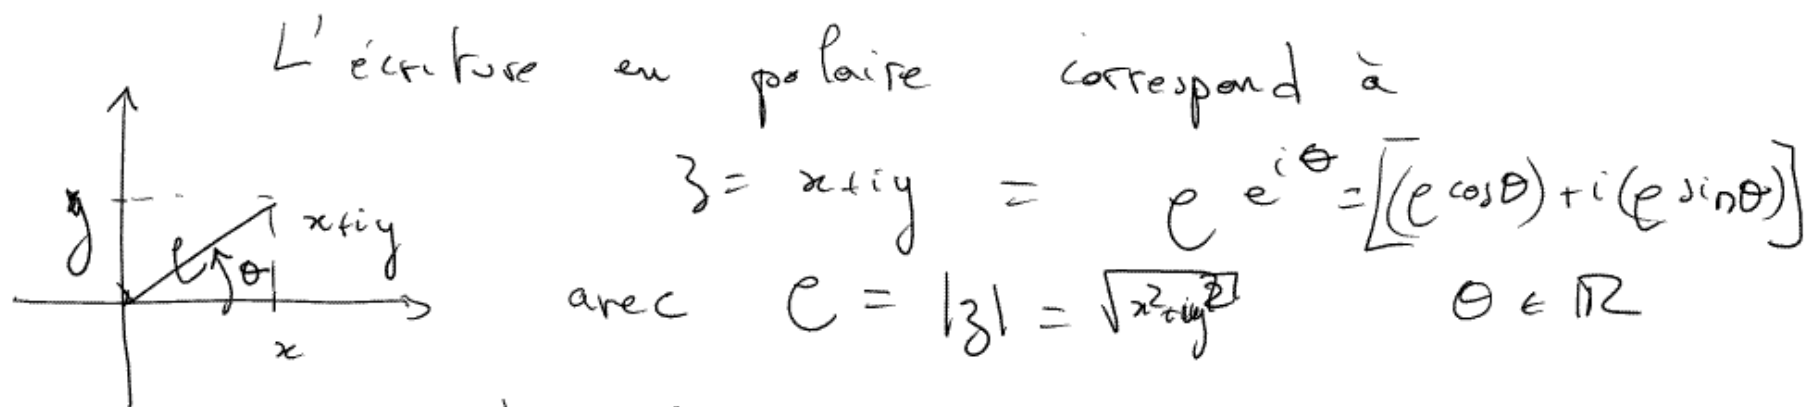 L'écriture en polaire correspond à
z = x+iy = ρ e^{iθ} = [(ρ cosθ) + i(ρ sinθ)]
y ρ θ x+iy
avec ρ = |z| = √(x²+y²) θ ∈ ℝ
x